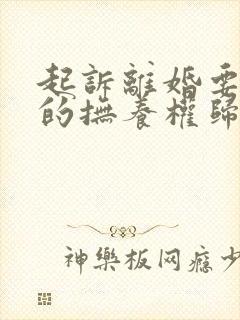 起訴離婚要
的撫養權歸
神樂板网瘾少